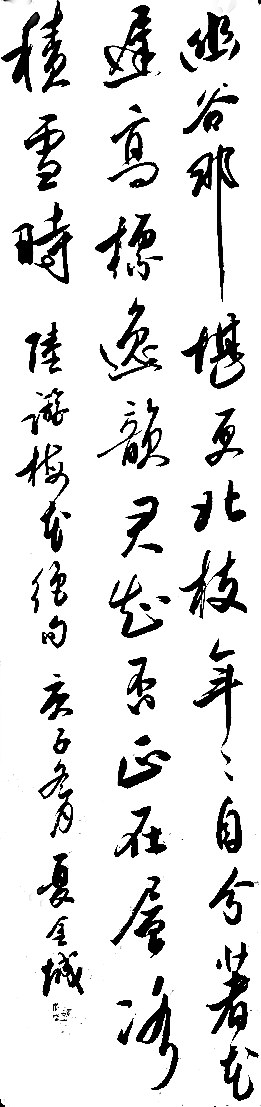 幽谷那堪更北枝年々自分著花
遲高標逸韻君知否正在層冰
積雪時 陸游梅花絕句 庚子冬月 夏金城